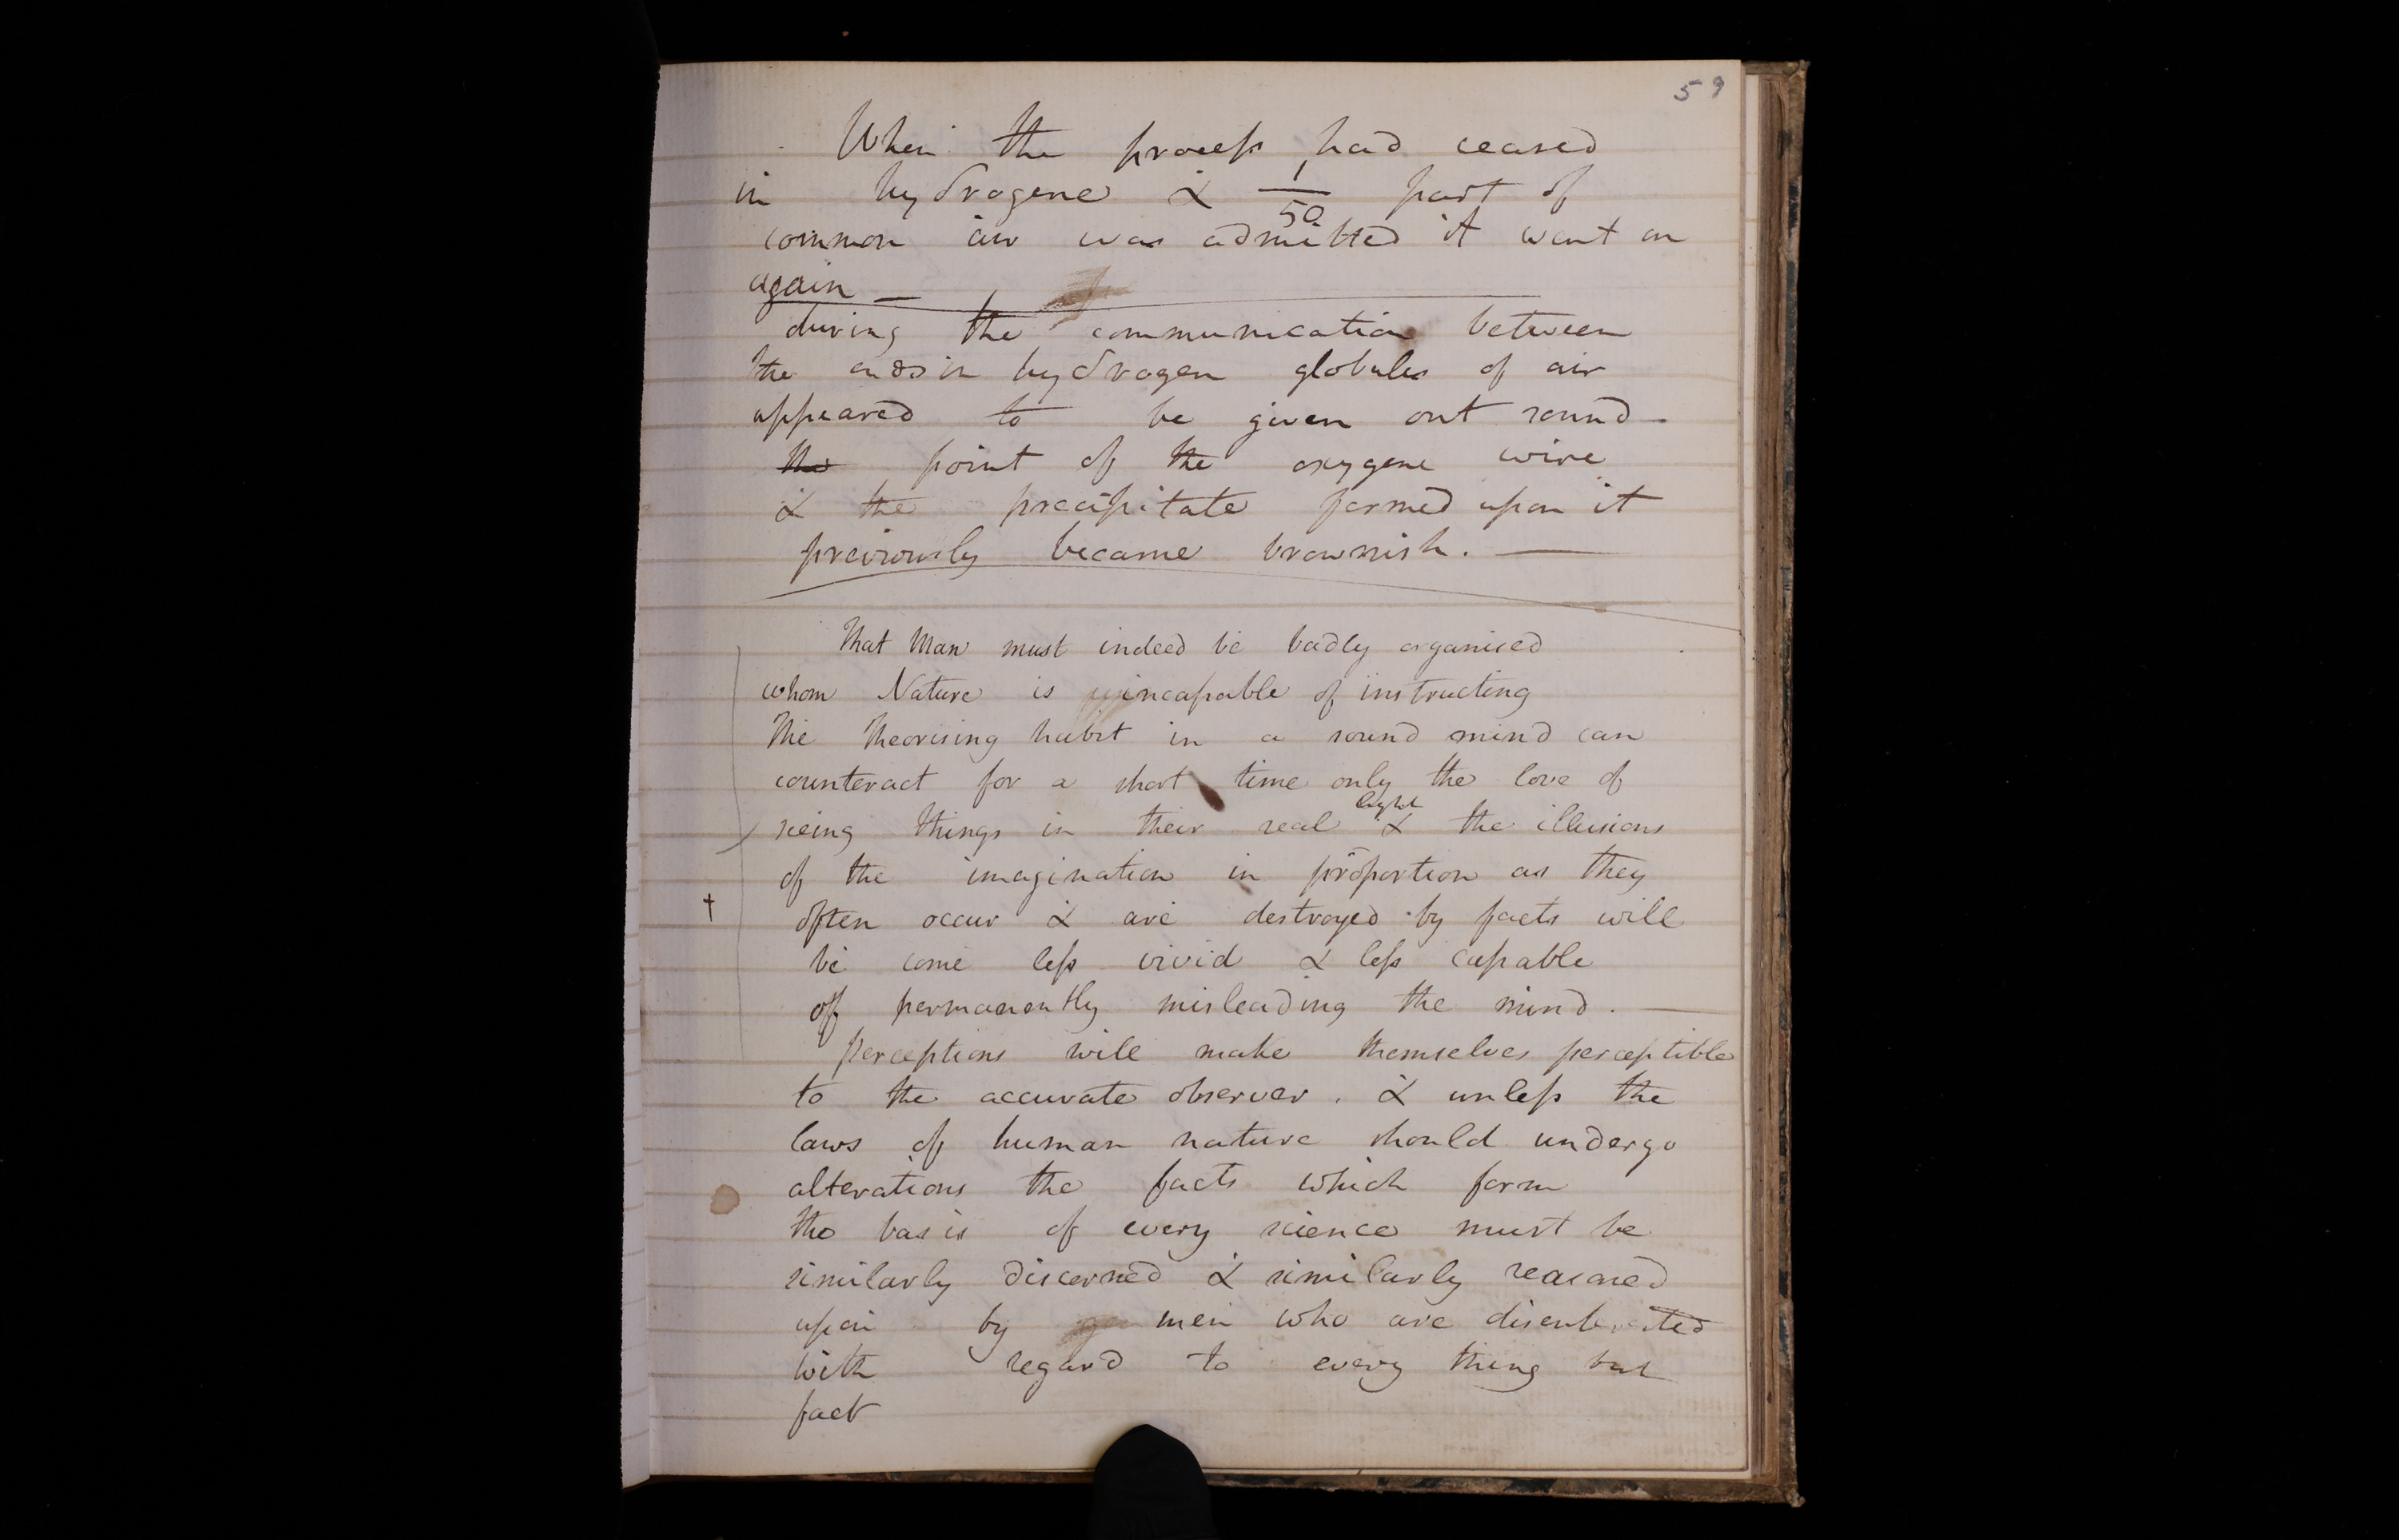 59
When the process had ceased
in hydrogene & 1/50 part of
common air was admitted it went on
again —
during the communication between
the ends in hydrogen globules of air
appeared to be given out round
the point of the oxygene wire
& the precipitate formed upon it
previously became brownish. —
That Man must indeed be badly organised
whom Nature is incapable of instructing
The theorising habit in a sound mind can
counteract for a short time only the love of
light
seeing things in their real & the illusions
of the imagination in proportion as they
† often occur & are destroyed by facts will
be come less vivid & less capable
off permanently misleading the mind. —
perceptions will make themselves perceptible
to the accurate observer. & unless the
laws of human nature should undergo
alterations the facts which form
the basis of every science must be
similarly discerned & similarly reasoned
upon by men who are disenterested
with regard to every thing but
fact